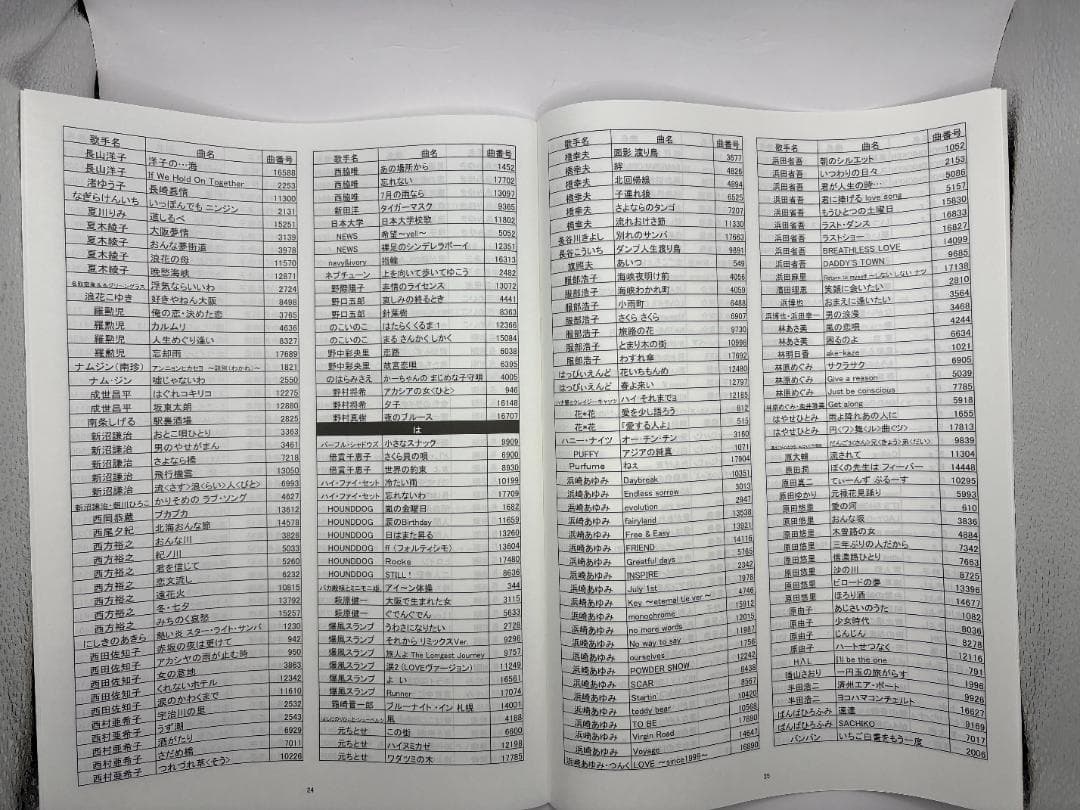 歌手名 曲名 曲番号
長山洋子 洋子の…海 16588
長山洋子 If We Hold On Together 2253
渚ゆう子 長崎慕情 11300
なぎらけんいち いっぽんでも ニンジン 2131
夏川りみ 道しるべ 15251
夏木綾子 大阪夢情 3139
夏木綾子 おんな夢街道 3978
夏木綾子 浪花の母 11570
夏木綾子 晩愁海峡 12871
浮気ならいいわ 2724
浪花こゆき 好きやねん大阪 8498
羅勲児 俺の恋・決めた恋 3765
羅勲児 カルムリ 4636
羅勲児 人生めぐり逢い 8327
羅勲児 忘却雨 17689
ナムジン(南珍) アンニョンヒカセヨ 1821
ナム・ジン 嘘じゃないわ 2550
成世昌平 はぐれコキリコ 12275
成世昌平 坂東太郎 12880
南条しげる 駅裏酒場 2825
新沼謙治 おとこ唄ひとり 3363
新沼謙治 男のやせがまん 3461
新沼謙治 さよなら橋 7218
新沼謙治 飛行機雲 13050
新沼謙治 流<さす>浪<らい>人<びと> 6993
新沼謙治 かりそめの ラブ・ソング 4627
西岡恭蔵 プカプカ 13612
西尾夕紀 北海おんな節 14578
西方裕之 おんな川 3828
西方裕之 紀ノ川 5033
西方裕之 君を信じて 5260
西方裕之 恋文流し 6232
西方裕之 遠花火 10815
西方裕之 冬・七夕 13792
西方裕之 みちのく哀愁 15257
にしきのあきら 熱い炎 スター・ライト・サンバ 1230
西田佐知子 赤坂の夜は更けて 942
西田佐知子 アカシヤの雨が止む時 950
西田佐知子 女の意地 3863
西田佐知子 くれないホテル 12342
西田佐知子 涙のかわくまで 11610
西村亜希子 宇治川の里 2532
西村亜希子 うず潮 2543
西村亜希子 酒がたり 6929
西村亜希子 さだめ橋 7011
西村亜希子 つれづれ草<そう> 10226
歌手名 曲名 曲番号
西脇唯 あの場所から 1452
西脇唯 忘れない 17702
西脇唯 7月の雨なら 13097
新田洋 タイガーマスク 9365
日本大学 日本大学校歌 11802
NEWS 希望~yell~ 5052
NEWS 裸足のシンデレラボーイ 12351
navy&ivory 指輪 16313
ネプチューン 上を向いて歩いてゆこう 2482
野際陽子 非情のライセンス 13072
野口五郎 哀しみの終るとき 4441
野口五郎 針葉樹 8363
のこいのこ はたらくくるま1 12366
のこいのこ まる さんかく しかく 15084
野中彩央里 恋路 6038
野中彩央里 故宮恋唄 6395
のはらみさえ かーちゃんの まじめな子守唄 4005
野村将希 アカシアの女<ひと> 946
野村将希 夕子 16148
野村真樹 夜のブルース 16707
は
パープル・シャドウズ 小さなスナック 9909
倍賞千恵子 さくら貝の唄 6900
倍賞千恵子 世界の約束 8930
ハイ・ファイ・セット 冷たい雨 10199
ハイ・ファイ・セット 忘れないわ 17709
HOUNDDOG 嵐の金曜日 1682
HOUNDDOG 涙のBirthday 11659
HOUNDDOG 日はまた昇る 13260
HOUNDDOG ff(フォルティシモ) 13604
HOUNDDOG Rocks 17480
HOUNDDOG STILL! 8636
バカ殿様とミニモニ姫。 アイーン体操 344
萩原健一 大阪で生まれた女 3115
萩原健一 ぐでんぐでん 5633
爆風スランプ うわさになりたい 2728
爆風スランプ それから リミックスVer. 9296
爆風スランプ 旅人よ The Longest Journey 9757
爆風スランプ 涙2(LOVEヴァージョン) 11249
爆風スランプ よ い 16561
爆風スランプ Runner 17074
箱崎晋一郎 ブルーナイト・イン 札幌 14001
はしだのりひことシューベルツ 風 4168
元ちとせ この街 6600
元ちとせ ハイヌミカゼ 12198
元ちとせ ワダツミの木 17785
24
歌手名 曲名 曲番号
橋幸夫 面影 渡り鳥 3677
橋幸夫 絆 4826
橋幸夫 北回帰線 4894
橋幸夫 子連れ狼 6525
橋幸夫 さよならのタンゴ 7207
橋幸夫 流れおけさ節 11330
長谷川きよし 別れのサンバ 17663
長谷こういち ダンプ人生渡り鳥 9891
旗照夫 あいつ 549
服部浩子 海峡夜明け前 4056
服部浩子 海峡わかれ町 4059
服部浩子 小雨町 6488
服部浩子 さくら さくら 6907
服部浩子 旅路の花 9730
服部浩子 とまり木の街 10996
服部浩子 わすれ傘 17692
はっぴぃえんど 花いちもんめ 12480
はっぴいえんど 春よ来い 12797
ハナ肇とクレイジーキャッツ ハイ それまでヨ 12185
花*花 愛を少し語ろう 812
花*花 「愛する人よ」 515
ハニー・ナイツ オー・チン・チン 3160
PUFFY アジアの純真 1071
Perfume ねぇ 17904
浜崎あゆみ Daybreak 10351
浜崎あゆみ Endless sorrow 3013
浜崎あゆみ evolution 2947
浜崎あゆみ fairyland 13538
浜崎あゆみ Free & Easy 13921
浜崎あゆみ FRIEND
浜崎あゆみ Greatful days 5765
浜崎あゆみ INSPIRE 2342
浜崎あゆみ July 1st 1978
浜崎あゆみ Key ~eternal tie ver.~ 4746
浜崎あゆみ monochrome 13912
浜崎あゆみ no more words 12015
浜崎あゆみ No way to say 11987
浜崎あゆみ ourselves 1756
浜崎あゆみ POWDER SNOW 12242
浜崎あゆみ SCAR 6438
浜崎あゆみ Startin' 8567
浜崎あゆみ teddy bear 10420
浜崎あゆみ TO BE 10568
浜崎あゆみ Virgin Road 17890
浜崎あゆみ Voyage 14647
浜崎あゆみ・つんく LOVE ~since1999~ 16890
25
歌手名 曲名 曲番号
浜田省吾 朝のシルエット 1052
浜田省吾 いつわりの日々 2153
浜田省吾 君が人生の時… 5086
浜田省吾 君に捧げる love song 5157
浜田省吾 もうひとつの土曜日 15830
浜田省吾 ラスト・ダンス 16833
浜田省吾 ラストショー 16827
浜田省吾 BREATHLESS LOVE 14099
浜田省吾 DADDY'S TOWN 9685
浜田麻里 Return to myself ~しない しない ナツ 17138
濱田理恵 笑顔に会いたい 2810
浜博也 おまえに逢いたい 3564
浜博也・浜田幸一 男の浪漫 3468
林あさ美 風の恋唄 4244
林あさ美 困るのよ 6634
林明日香 ake-kaze 1021
林原めぐみ サクラサク 6905
林原めぐみ Give a reason 5039
林原めぐみ Just be conscious 7785
林原めぐみ・奥井雅美 Get along 5918
はやせひとみ 雨よ降れあの人に 1655
はやせひとみ 円<ワ>舞<ル>曲<ツ> 17813
9839
原大輔 流されて 11304
原田潤 ぼくの先生は フィーバー 14448
原田真二 てぃーんず ぶるーす 10295
原田ゆかり 元禄花見踊り 5993
原田悠里 愛の河 610
原田悠里 おんな坂 3836
原田悠里 木曽路の女 4884
原田悠里 三年ぶりの人だから 7342
原田悠里 信濃路ひとり 7663
原田悠里 沙の川 8725
原田悠里 ビロードの夢 13396
原田悠里 ほろり酒 14677
原由子 あじさいのうた 1082
原由子 少女時代 8036
原由子 じんじん 8278
原由子 ハートせつなく 12116
HAL I'll be the one 791
晴山さおり 一円玉の旅がらす 1996
半田浩二 済州エア・ポート 9926
半田浩二 ヨコハマコンチェルト 16627
ばんばひろふみ 速達 9169
ばんばひろふみ SACHIKO 7017
バンバン いちご白書をもう一度 2006